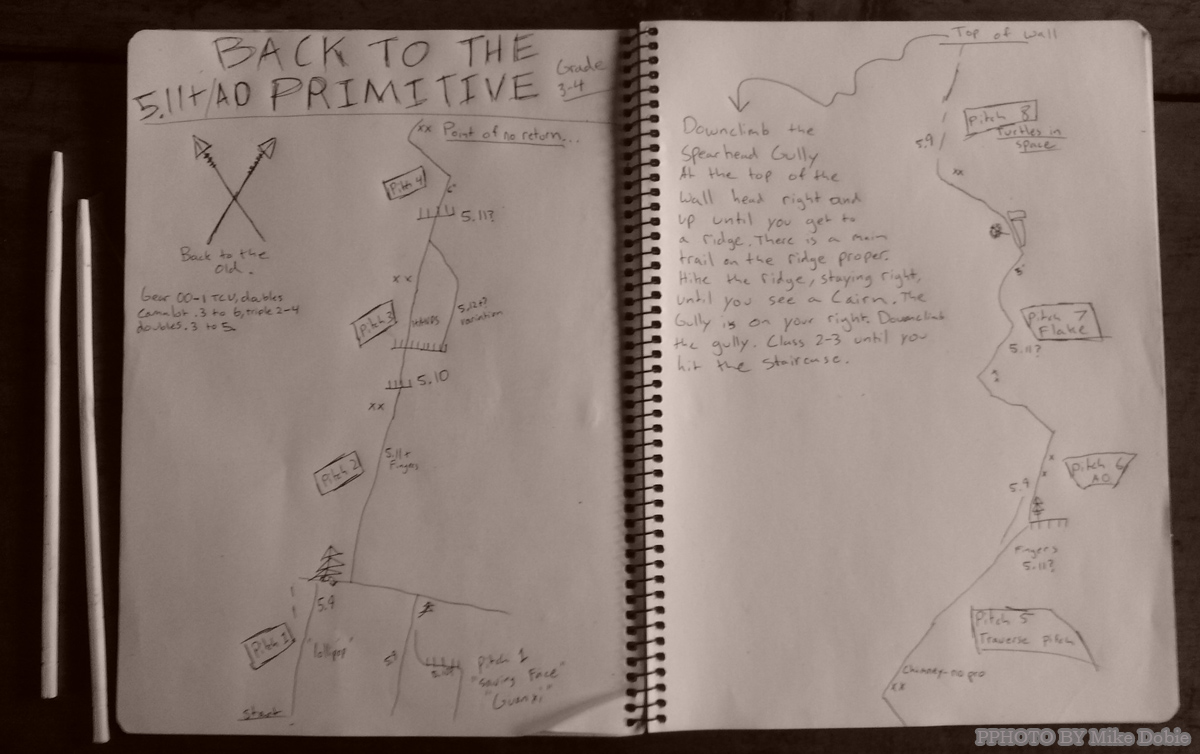 BACK TO THE
5.11+/A0 PRIMITIVE
Grade
3-4
xx Point of no return...
Pitch 4
6"
5.11?
Back to the
Old.
xx
Gear 00-1 TCU, doubles
Camalot .3 to 6, triple 2-4
doubles .3 to 5
Pitch 3
5.12+?
variation
5.10
xx
5.11+
Fingers
Pitch 2
5.9
Pitch 1
"lollipop"
Pitch 1
"Saving Face"
"Guanxi"
start
Top of Wall
Downclimb the
Spearhead Gully
At the top of the
Wall head right and
up until you get to
a ridge. There is a main
trail on the ridge proper.
Hike the ridge, staying right,
until you see a Cairn. The
Gully is on your right. Downclimb
the gully. Class 2-3 until you
hit the Staircase.
Pitch 8
Turtles in
space
5.9
xx
Pitch 7
Flake
5.11?
x
x
x
x
Pitch 6
A0
5.9
Fingers
5.11?
Pitch 5
Traverse pitch
Chimney-no pro
xx
PPHOTO BY Mike Dobie